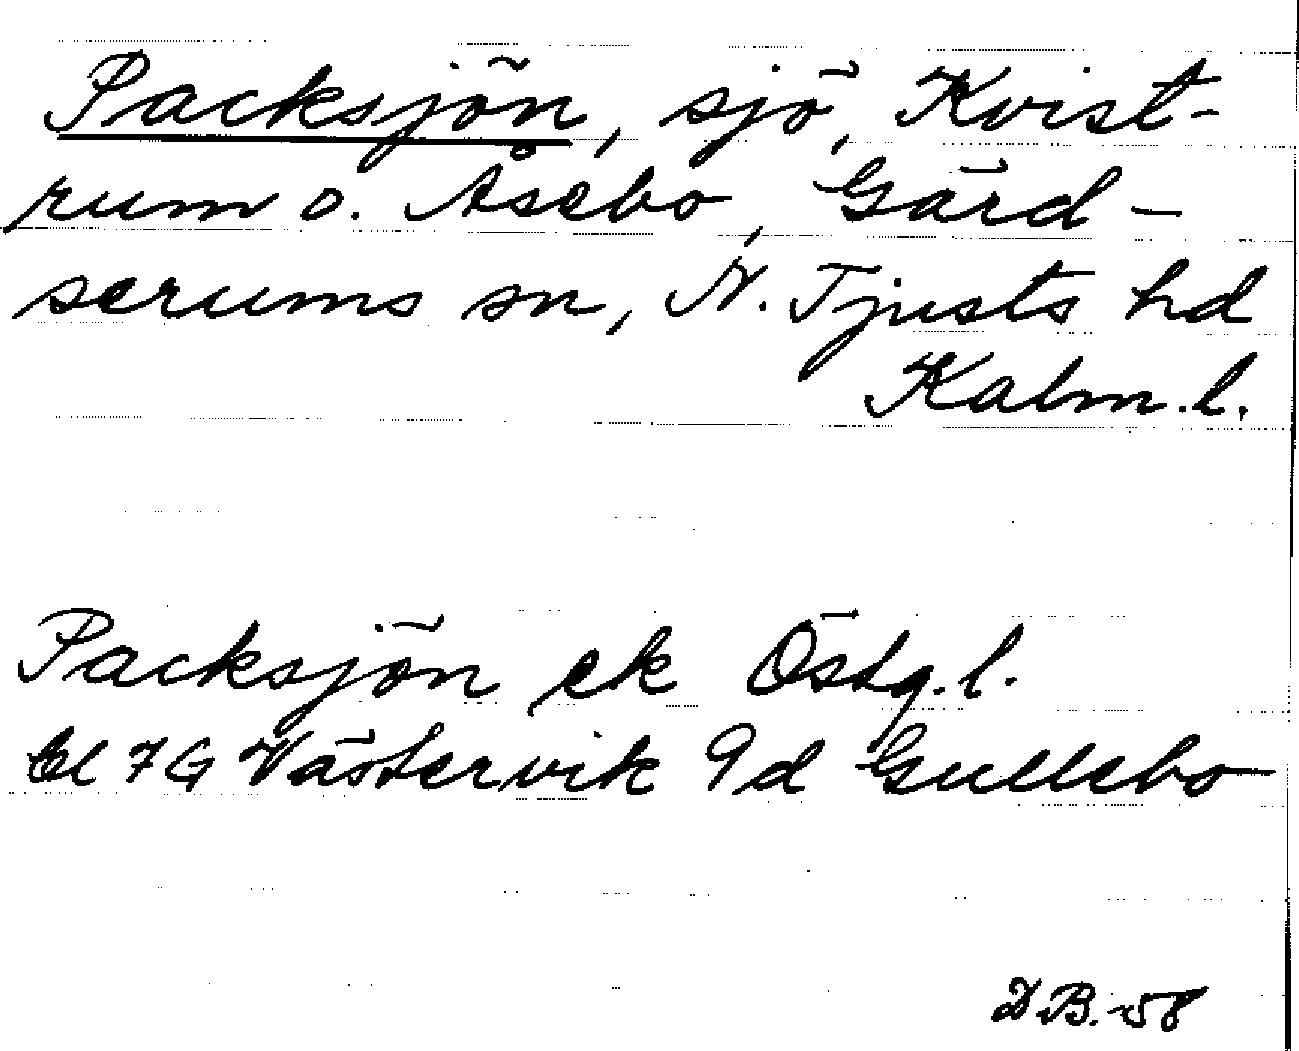 Packsjön, sjö, Kvist-
rum o. Åsebo, Gärd-
serums sn, N. Tjusts hd
Kalm. l.
Packsjön ek Östg. l.
bl 7G Västervik 9d Gullebo
D B. -58